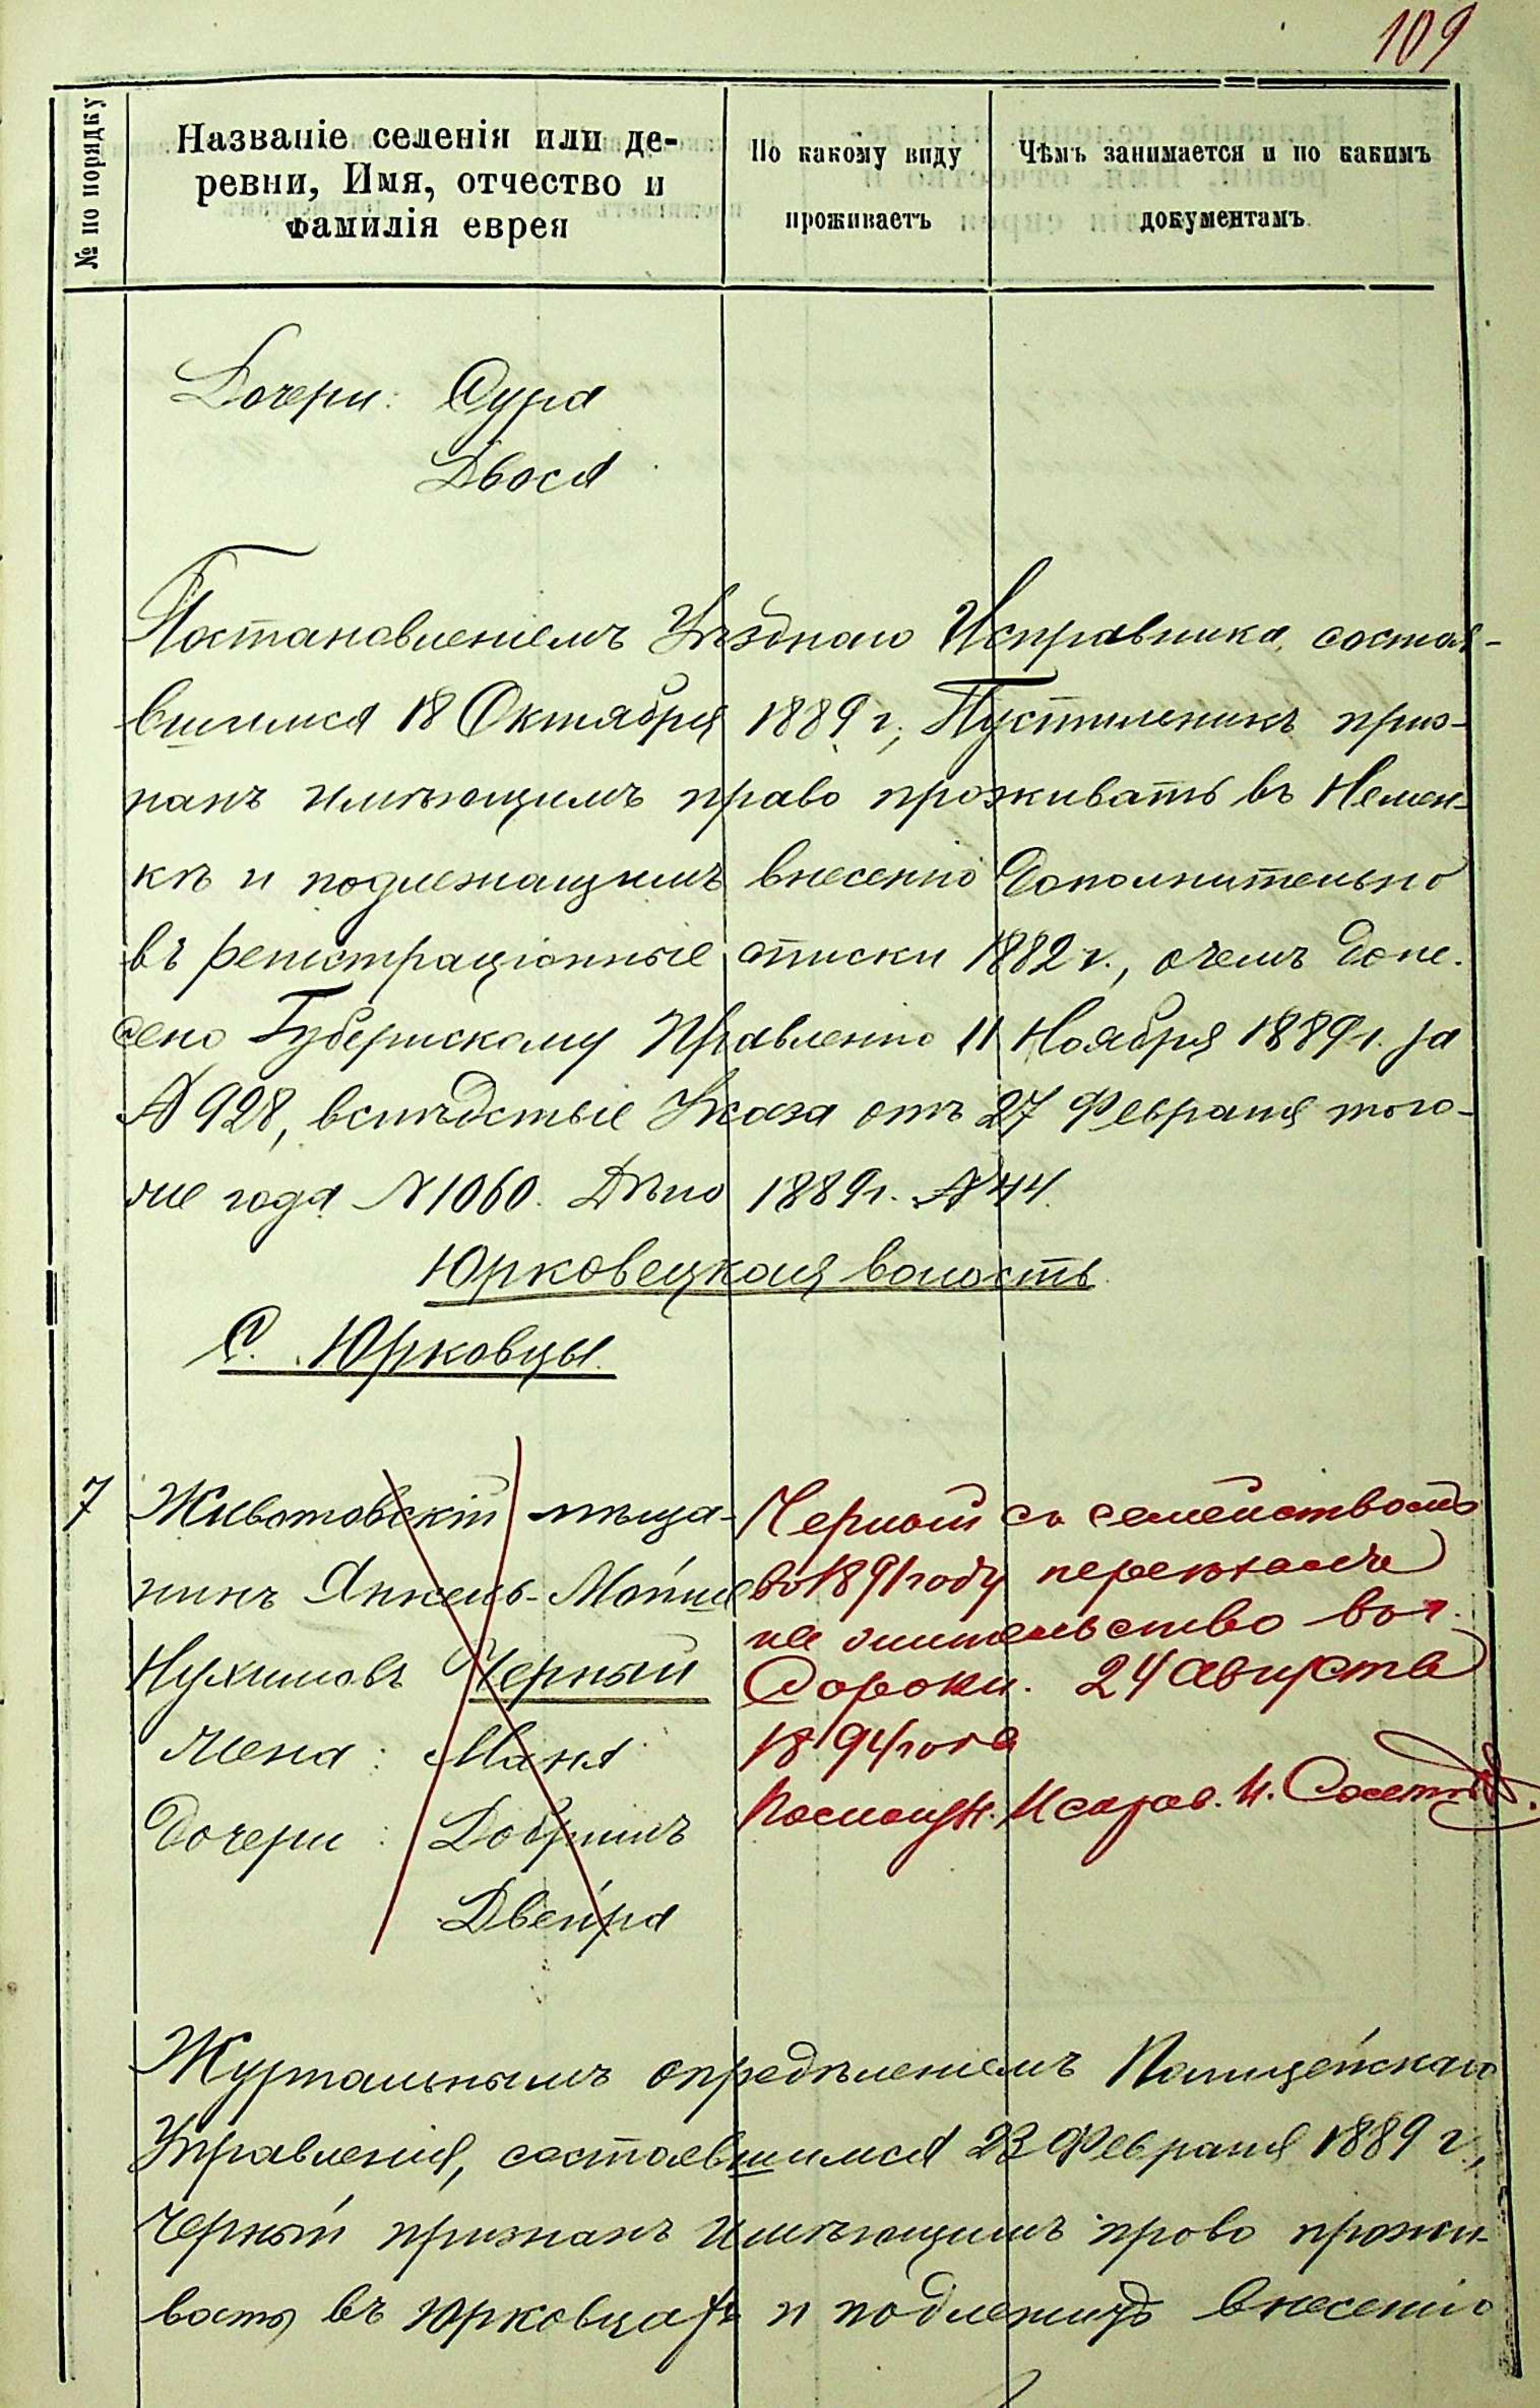 109
№ по порядку
Названіе селенія или де-
ревни, Имя, отчество и
фамилія еврея
По какому виду
проживаетъ
Чѣмъ занимается и по какимъ
документамъ.
Дочери: Сура
Двося
Постановленіемъ Уѣзднаго Исправника, состояв-
вшимся 18 Октября 1889 г., Пустыленикъ приз-
нанъ имѣющимъ право проживать въ Немен-
кѣ и подлежащимъ внесенію дополнительно
въ регистраціонные списки 1882 г., о чемъ доне-
сено Губернскому Правленію 11 Ноября 1889 г. за
№ 928, вслѣдствіе Указа отъ 27 Февраля того-
же года № 1060. Дѣло 1889 г. № 44.
Юрковецкая волость.
С. Юрковцы.
7
Животовскій мѣща-
нинъ Янкель-Мойше
Нухимовъ Черный
Жена: Маня
Дочери: Добришъ
Двейра
Черный съ семействомъ
въ 1891 году переѣхалъ
на жительство въ г.
Сороки. 24 Августа
1894 года
Помощн. Исправ. И.
Журнальнымъ опредѣленіемъ Полицейскаго
Управленія, состоявшимся 23 Февраля 1889 г.,
Черный признанъ имѣющимъ право прожи-
вать въ Юрковцахъ и подлежитъ внесенію